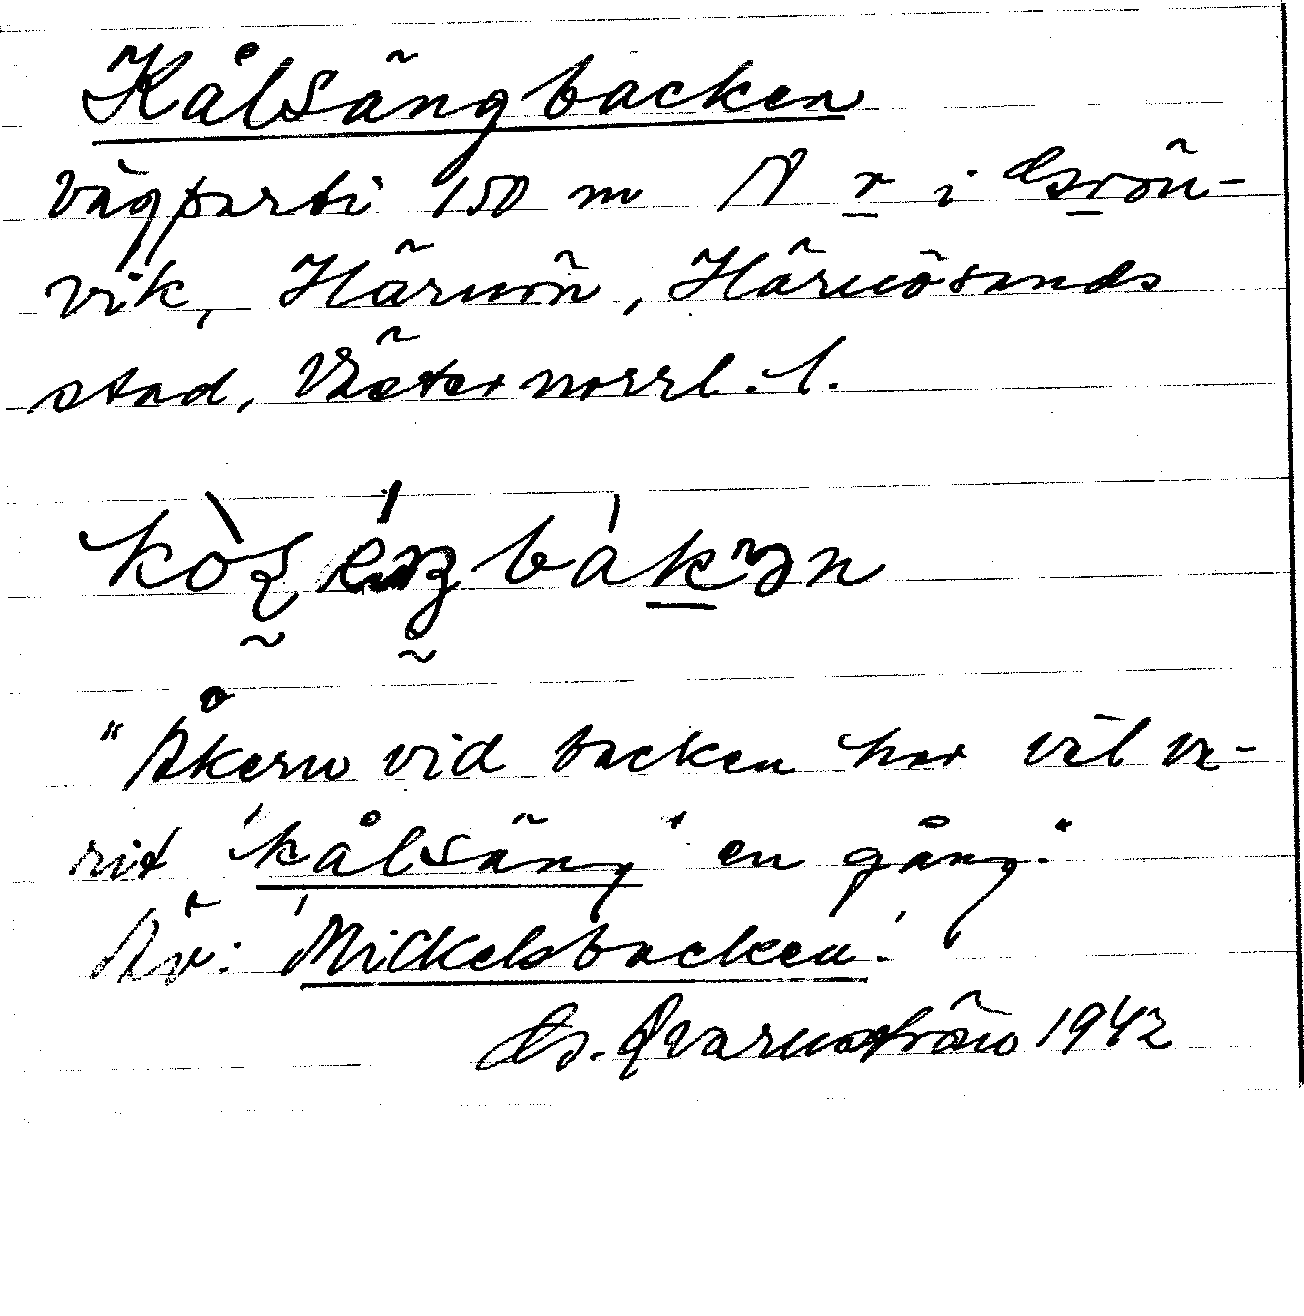 Kålsängbacken
Vägparti 150 m N r i Grön-
vik, Härnön, Härnösands
stad, Västernorrl. l.
"Åkern vid backen har väl va-
rit 'kålsäng' en gång."
Äv: 'Mickelsbacken'.
G. Qvarnström 1942